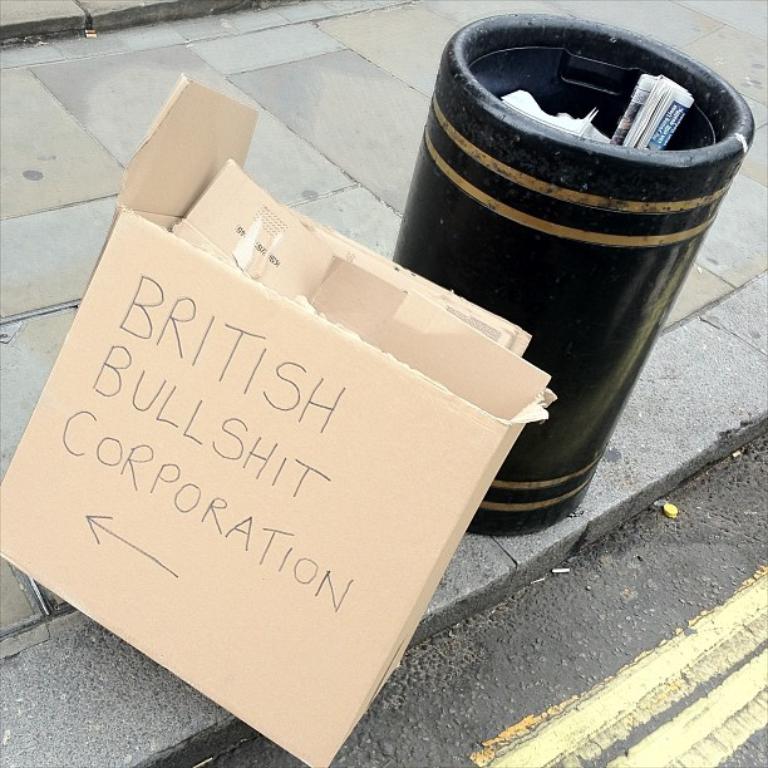 BRITISH
BULLSHIT
CORPORATION